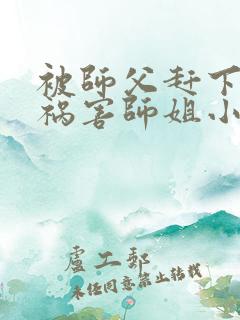 被師父赶下
祸害師姐小
盧工郵
未任同意禁止转载